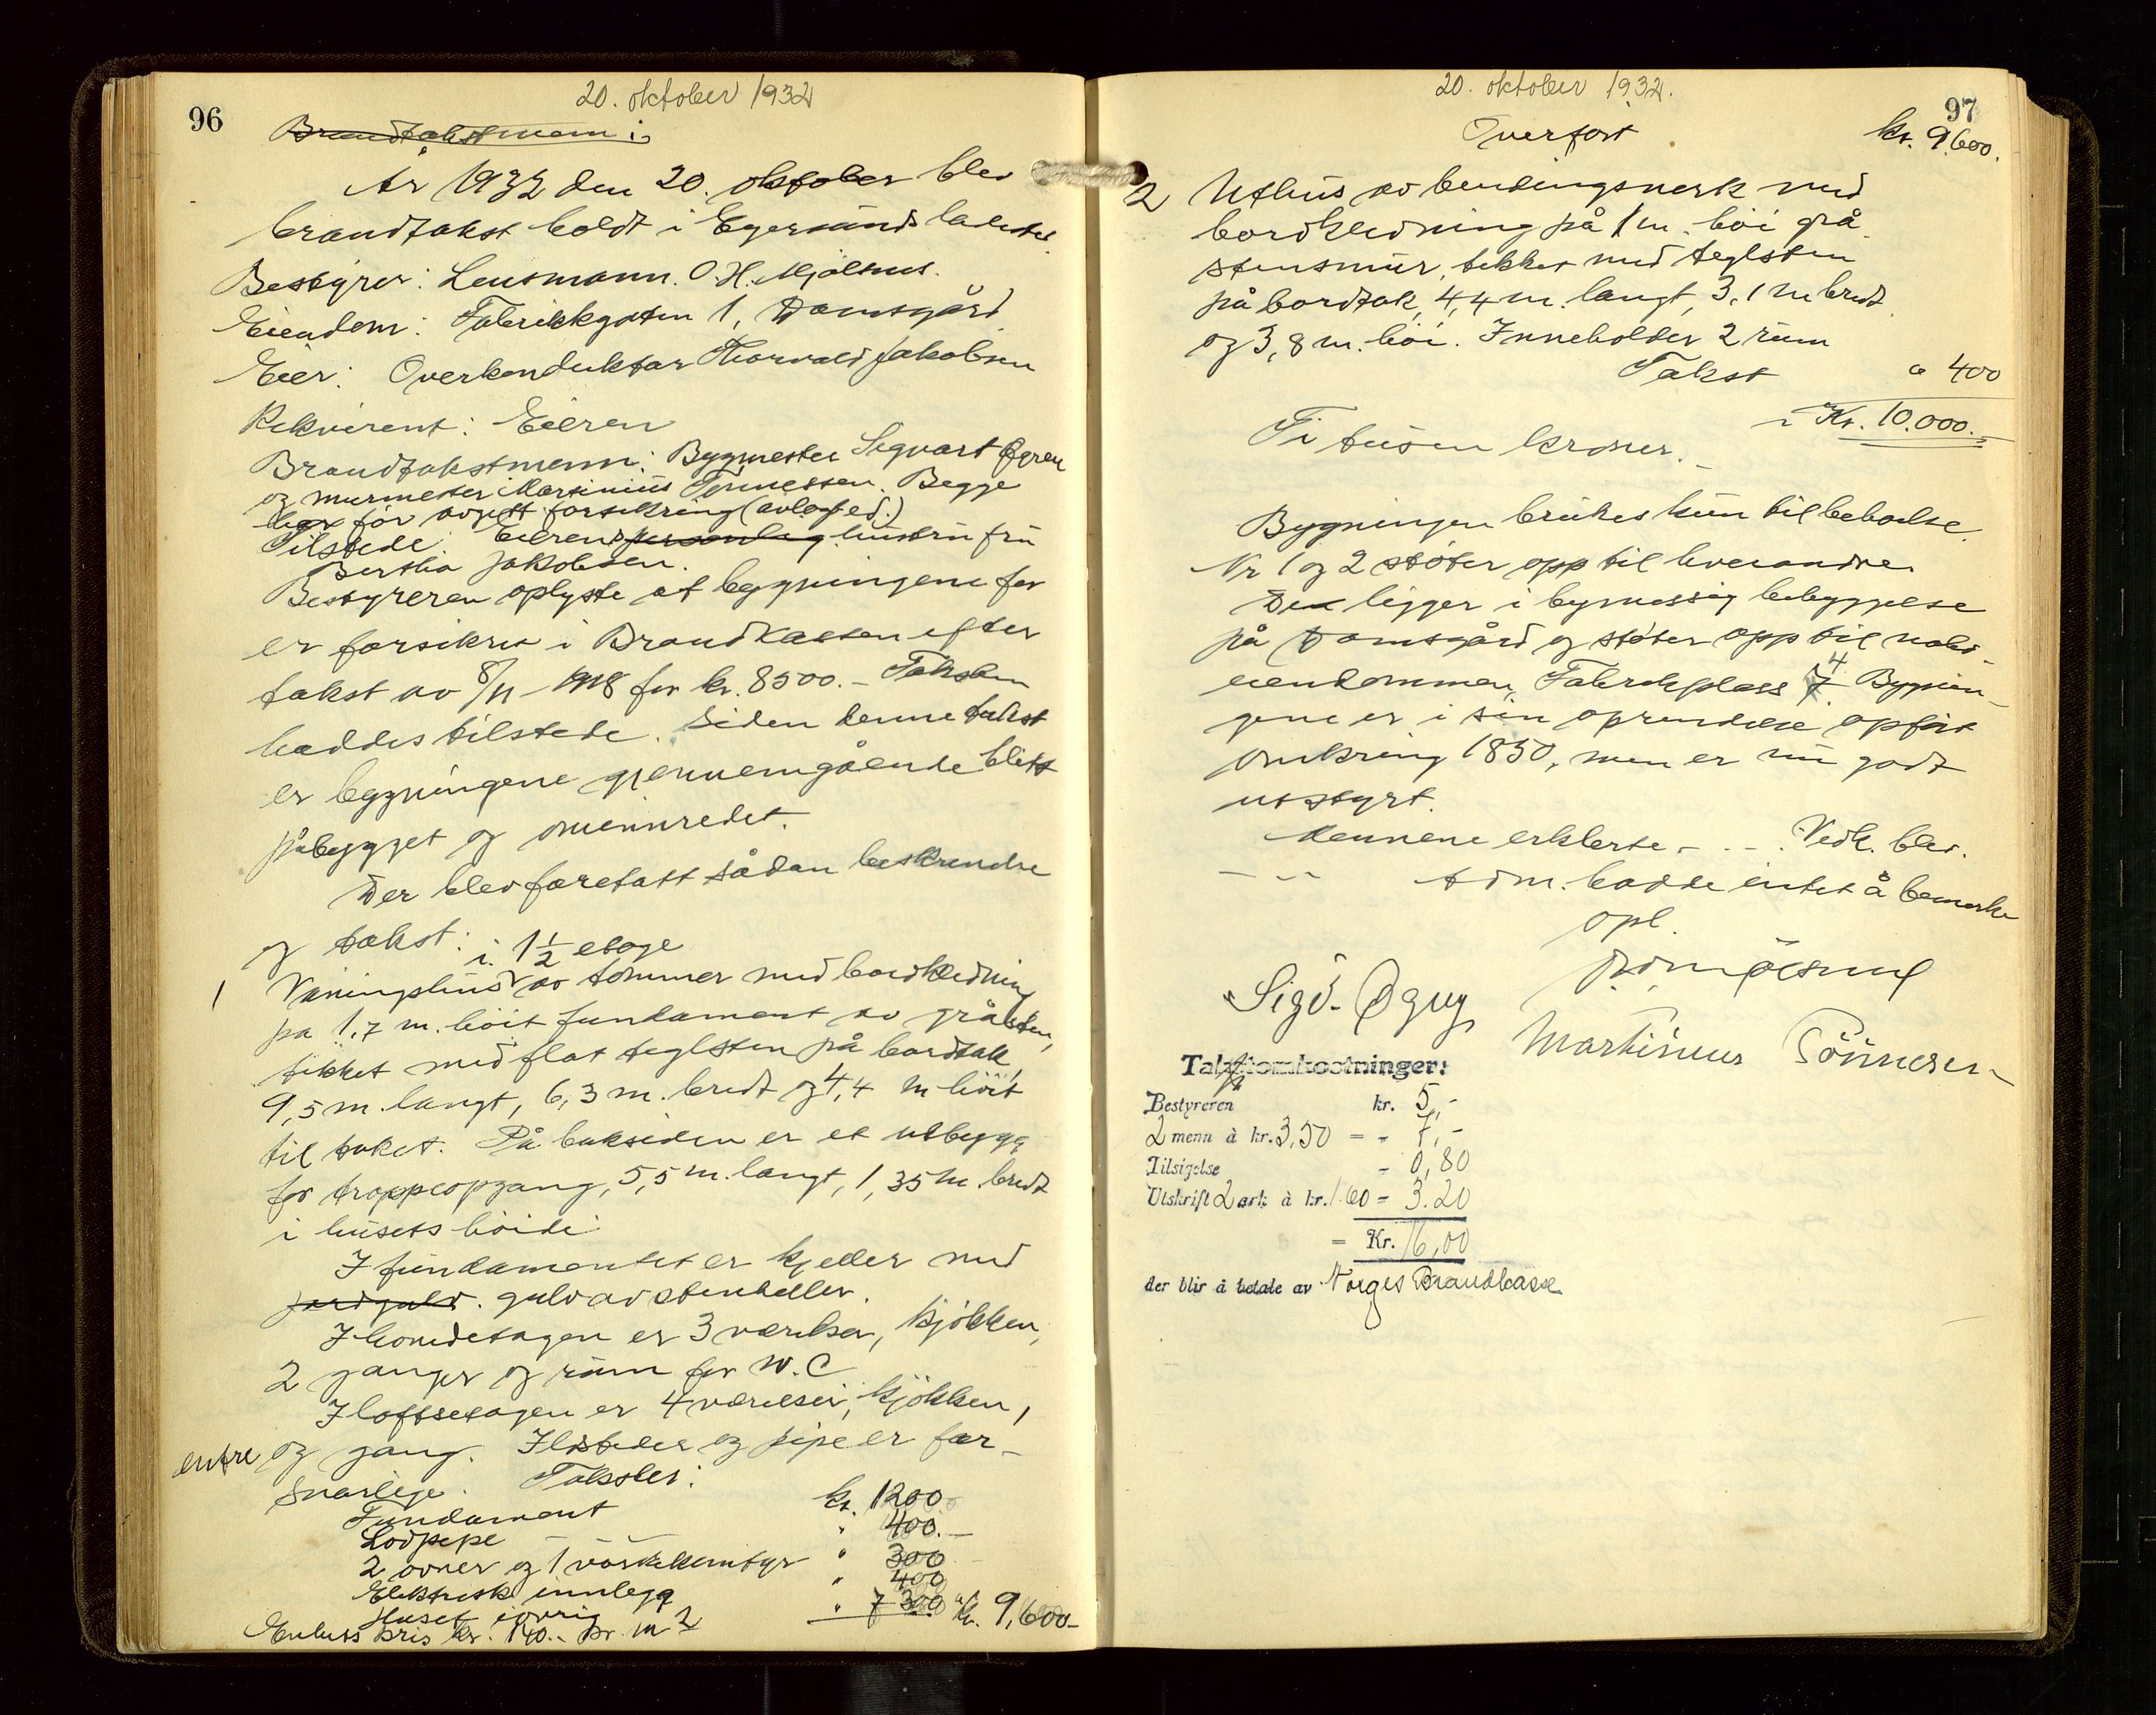 20. oktober 1932
96
Brandtakstmenn i
År 1932 den 20. oktober blev
brandtakst holdt i Egersund ladested
Bestyrer: Lensmann O. H. Mjølsnes.
Eiendom: Fabrikkgaten 1, Damsgård
Eier: Overkonduktør Thorvald Jakobsen
Rekvirent: Eieren
Brandtakstmenn: Bygmester Sigvart Øgreu
og murmester Martinius Tönnessen. Begge
har før avgitt forsikring (avlagt ed.)
Tilstede: Eierens personlig hustru fru
Bertha Jakobsen.
Bestyreren oplyste at bygningene før
er forsikret i Brandkassen efter
takst av 8/11-1918 for kr. 8500.- Taksten
haddes tilstede. Siden denne takst
er bygningene gjennemgående blitt
påbygget og ominnredet.
Der blev foretatt sådan beskrivelse
og takst:
i 1½ etage
1 Våningshus av tømmer med bordkledning
på 1,7 m. höit fundament av gråsten,
tekket med flat teglsten på bordtak,
9,5 m. langt, 6,3 m. bredt og 4,4 m höit
til taket. På baksiden er et utbygg
for trappeopgang, 5,5 m. langt, 1,35 m. bredt
i husets höide.
I fundamentet er kjeller med
jordgulv. gulv av stenheller.
I hovedetagen er 3 værelser, kjökken,
2 ganger og rum for W.C
I loftsetagen er 4 værelser, kjökken,
entre og gang. Ildsteder og pipe er for-
svarlige. Takster:
Fundament kr. 1200
Lodpipe " 400.-
2 ovner og 1 vaskekomfyr " 300
Elektrisk innlegg " 400
Huset iøvrig " 7300 kr. 9,600-
Enhets pris kr. 140.- pr. m2
20. oktober 1932.
97
Overført kr. 9600.
2 Uthus av bindingsverk med
bordkledning på 1 m. höi grå-
stensmur, tekket med teglsten
på bordtak, 4,4 m. langt, 3,1 m bredt
og 3,8 m. höi. Inneholder 2 rum
Takst " 400
Kr. 10.000.-
Ti tusen kroner.
Bygningen brukes kun til beboelse.
Nr 1 og 2 støter opp til hverandre.
Den ligger i bymessig bebyggelse
på Damsgård og støter opp til nabo-
eiendommen, Fabrikplass 7 4 Bygnin-
gene er i sin oprindelse opført
omkring 1850, men er nu godt
utstyrt.
Mennene erklærte - . - . Vedk. blev.
- - - adm. hadde intet å bemerke
opl.
Sigv. Øgreу
Martinius Tönnesen
Takstomkostninger:
Bestyreren kr. 5,-
2 menn à kr. 3,50 = - 7,-
Tilsigelse - 0,80
Utskrift 2 ark à kr. 1.60 = 3.20
= Kr. 16,00
der blir å betale av Norges Brandkasse